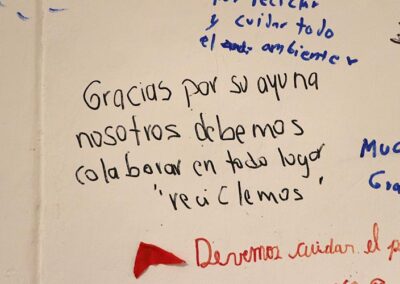 por reciclar
y cuidar todo
el ambienter
Gracias por su ayuna
nosotros debemos
colaborar en todo lugar
"reciclemos"
Muc
Gra
Devemos cuidar el p